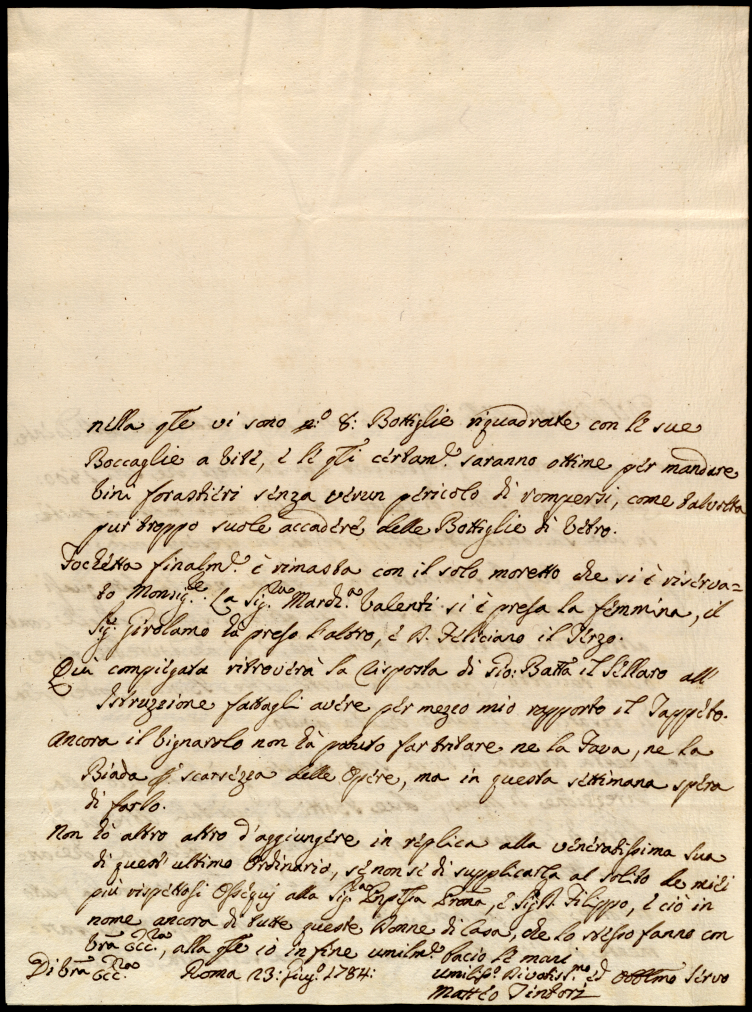 nella qle vi sono no. 8: Bottiglie riquadrate con le sue
Boccaglie a Vite, e le qli certamte. saranno ottime per mandare
Vini forastieri senza verun pericolo di rompersi, come talvolta
pur troppo suole accadere delle Bottiglie di Vetro.
Fochetta finalmte. è rimasta con il solo moretto che si è riserva=
to Monsigre. La Sigra. March.a Valenti si è presa la femmina, il
Sigr. Girolamo hà preso l'altro, e D. Feliciano il Terzo.
Quì compiegata ritroverà la risposta di Gio: Batta il Sellaro all
Istruzzione fattagli avere per mezzo mio rapporto il Tappeto.
Ancora il Vignarolo non hà potuto far tritare ne la Fava, ne la
Biada p scarsezza delle Opere, ma in questa settimana spera
di farlo.
Non hò altro altro d'aggiungere in replica alla veneratissima sua
di quest ultimo Ordinario, se non se di supplicarla al solito de miei
più rispettosi Ossequj alla Sigra Prona, e Sigr. D. Filippo, e ciò in
nome ancora di tutte queste Donne di Casa, che lo stesso fanno con
Vra Eccza, alla qle io in fine umilmte. bacio le mani
Di Vra Eccza. Roma 23: Giugo. 1784:
umilisso. Divotissmo ed Obblmo servo
Matteo Tintori